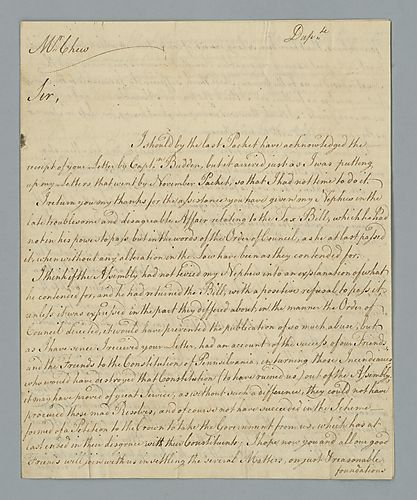 Mr. Chew
Dup.te
Sir,
I should by the last Packet have acknowledged the
receipt of your Letter by Captn. Budden, but it arrived just as I was putting
up my Letters that went by November Packet, so that I had not time to do it.
I return you my thanks for the assistance you have given my Nephew in the
late troublesome and disagreable Affair relating to the Tax Bill, which he had
not in his power to pass, but in the words of the Order of Council, as he at last passed
it, when without any alteration the Law have been as they contended for.
I think if the Assembly had not teized my Nephew into an explanation of what
he contened for, and he had returned the Bill, with a positive refusal to pass it,
unless it was expressed in the part they differed about, in the manner the Order of
Council directed, it would have prevented the publication of so much abuse; but
as I have since I received your Letter, had an account of the success of our Friends
and the Friends to the Constitution of Pennsilvania, in turning those Incendiaries
who would have destroyed that Constitution (to have ruined us) out of the Assembly
it may have proved of great Service, as without such a difference, they could not have
procured those mad Resolves, and of course not have succeeded in the Scheme
formed of a Petition to the Crown to take the Government from us, which has at
last ended in their disgrace with their Constituents; I hope now you and all our good
Friends will join with us in settling the several Matters, on just & reasonable
foundations